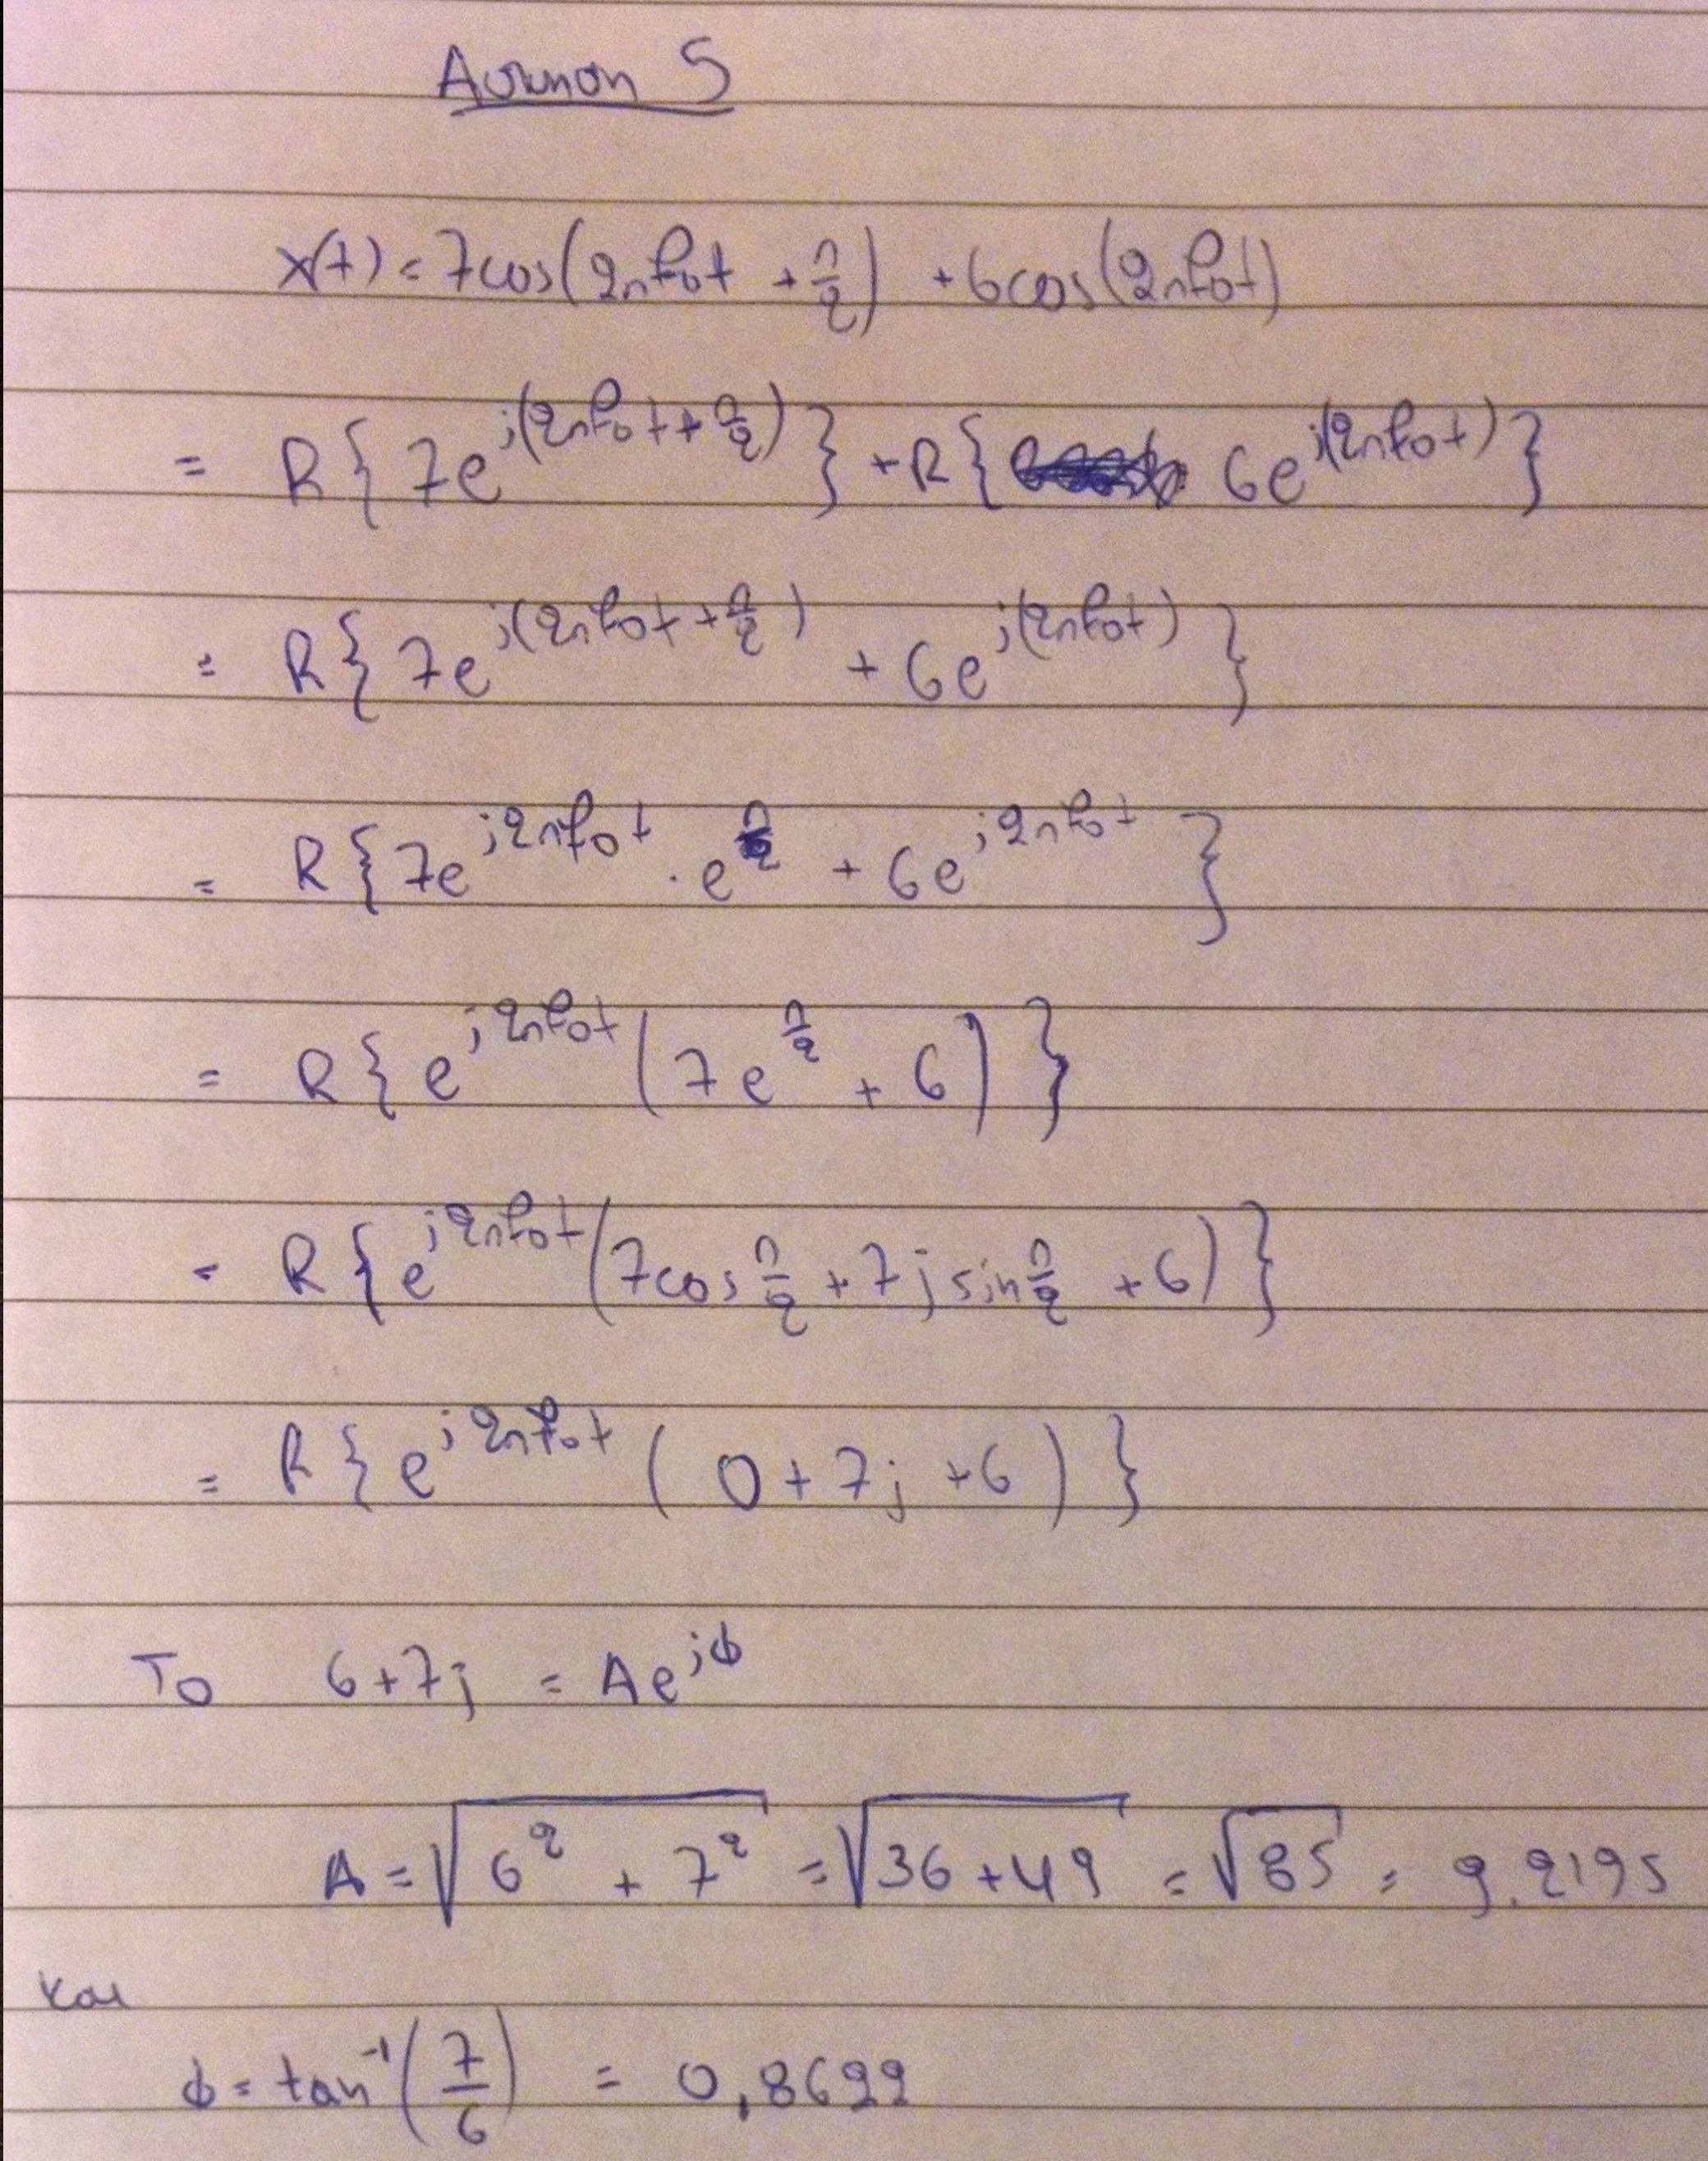 Άσκηση 5
x(t) = 7cos(2πf₀t + π/2) + 6cos(2πf₀t)
= R{ 7e^{j(2πf₀t + π/2)} } + R{ 6e^{j(2πf₀t)} }
= R{ 7e^{j(2πf₀t + π/2)} + 6e^{j(2πf₀t)} }
= R{ 7e^{j2πf₀t} · e^{π/2} + 6e^{j2πf₀t} }
= R{ e^{j2πf₀t} ( 7e^{π/2} + 6 ) }
= R{ e^{j2πf₀t} ( 7cos π/2 + 7j sin π/2 + 6 ) }
= R{ e^{j2πf₀t} ( 0 + 7j + 6 ) }
Το 6+7j = Ae^{jφ}
A = √(6² + 7²) = √(36+49) = √85 = 9.2195
και
φ = tan⁻¹(7/6) = 0,8622